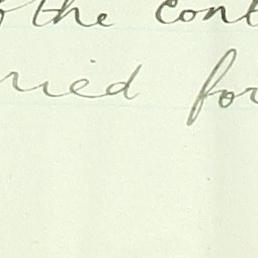 the cont
ried for